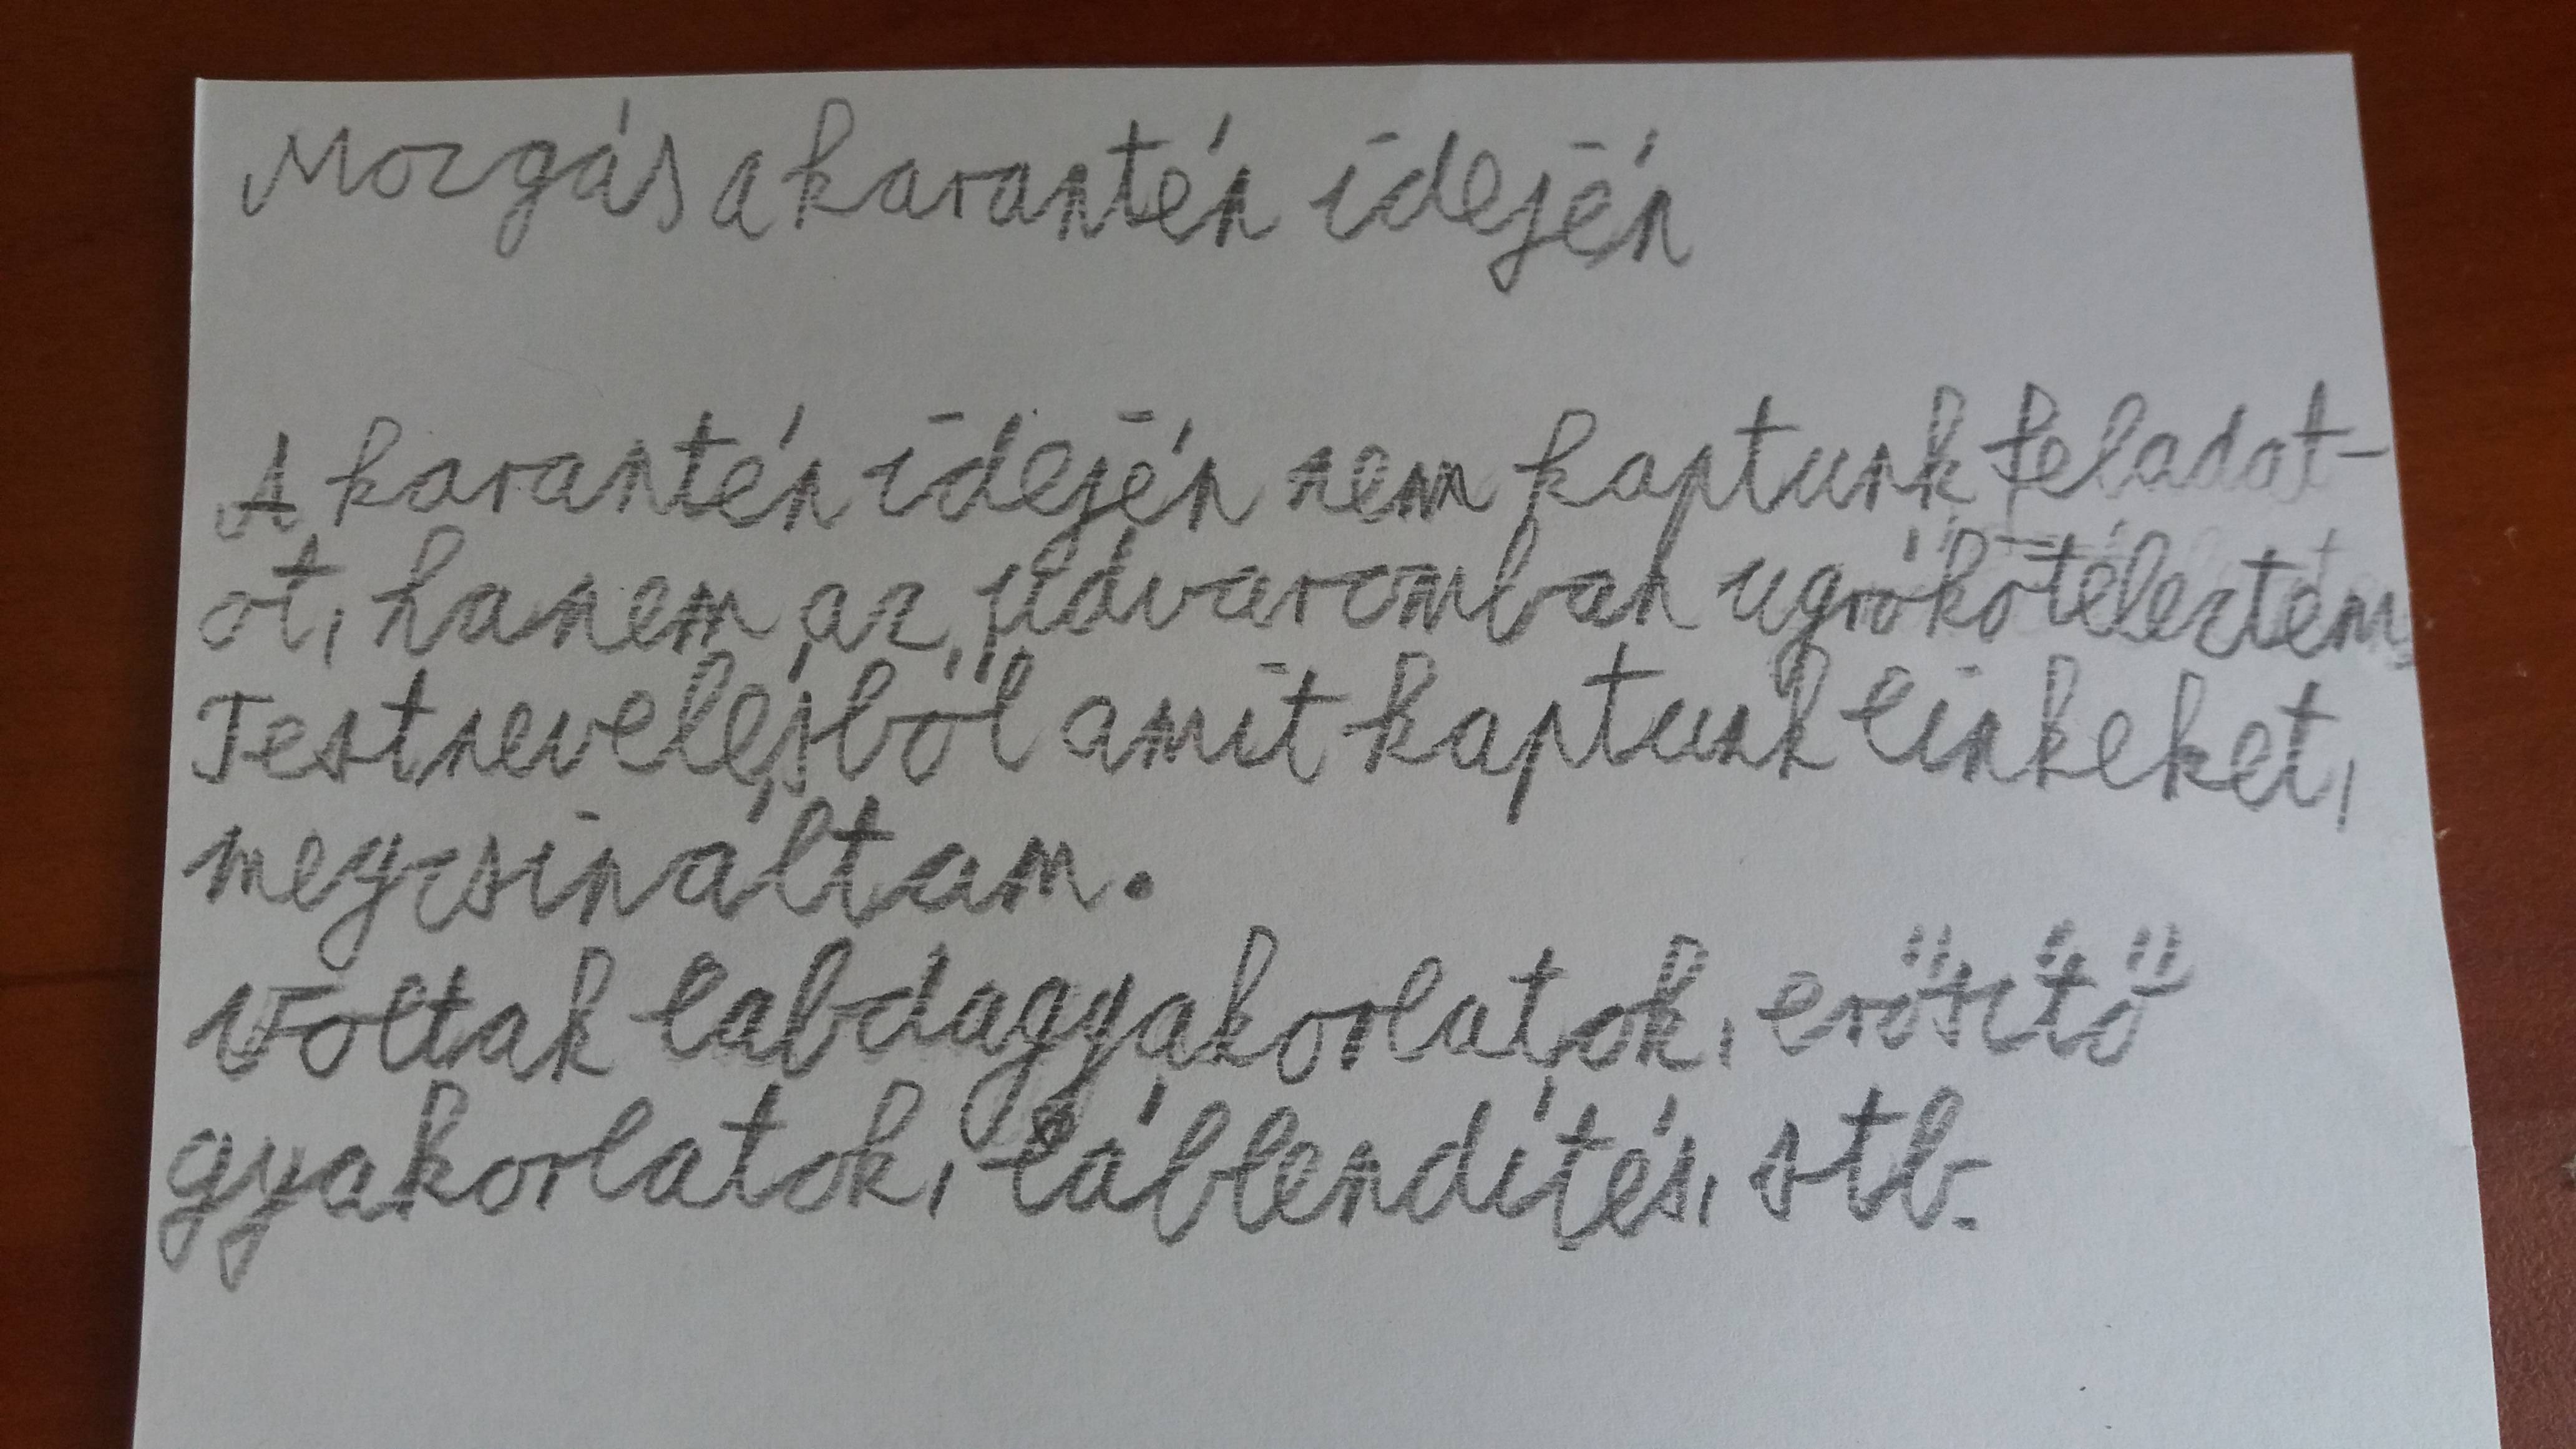 Mozgás a karantén idején
A karantén idején nem kaptunk feladat-
ot, hanem az udvaromban ugrókötéleztem
Testnevelésből amit kaptunk linkeket,
megcsináltam.
Voltak labdagyakorlatok, erősítő
gyakorlatok, láblendítés, stb.